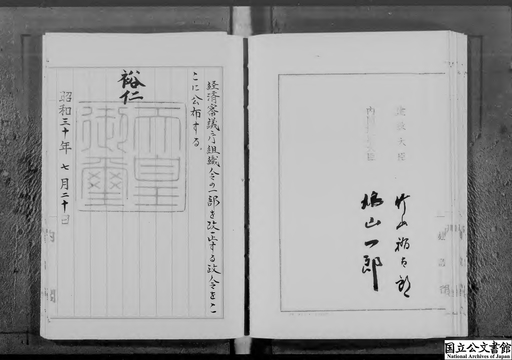 経済審議庁組織令の一部を改正する政令をこ
こに公布する。
裕仁
天皇
御璽
昭和三十年七月二十日
建設大臣
竹山祐太郎
内閣総理大臣
鳩山一郎
国立公文書館
National Archives of Japan